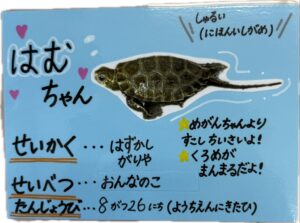 しゅるい
(にほんいしがめ)
はむ
ちゃん
せいかく・・・はずかし
がりや
せいべつ・・・おんなのこ
たんじょうび・・・8がつ26にち(ようちえんにきたひ)
めがんちゃんより
すこしちいさいよ!
くろめが
まんまるだよ!